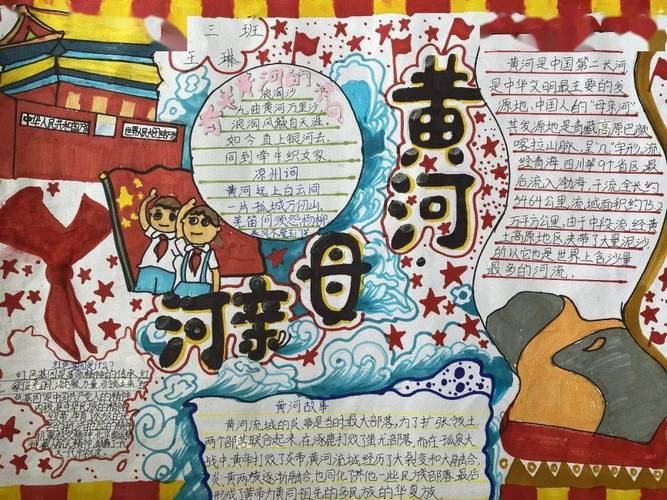 三 班
王 琳
中华人民共和国万岁
世界人民大团结万岁
浪淘沙
九曲黄河万里沙,
浪淘风簸自天涯.
如今直上银河去,
同到牵牛织女家.
凉州词
黄河远上白云间
一片孤城万仞山.
羌笛何须怨杨柳
黄河
母亲河
黄河是中国第二长河
是中华文明最主要的发
源地,中国人的"母亲河"
其发源地是青藏高原巴颜
喀拉山脉,呈"几"字形,流
经青海.四川等9个省区.最
后流入渤海,干流全长约
5464公里.流域面积约75.2
万平方公里,由于中段流经黄
土高原地区夹带了大量泥沙
所以它也是世界上含沙量
最多的河流.
红色基因是什么?
红色基因是革命精神的传承,红
黄河故事
黄河流域的炎帝是当时最大部落,为了扩张领土,
两个部落联合起来,在涿鹿打败了蚩尤部落,而在阪泉大
战中,黄帝打败了炎帝.黄河流域经历了大裂变和大融合,
炎、黄两族逐渐融合,也同化了其他一些民族部落.最后
形成了黄帝为共同祖先的多民族的华夏族.